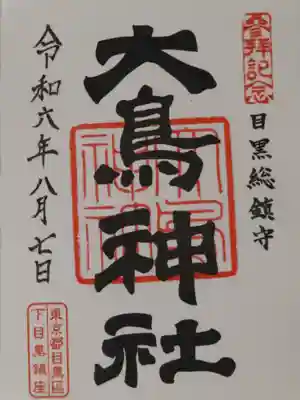 参拝記念
目黒総鎮守
大鳥神社
令和六年八月七日
東京都目黒区
下目黒鎮座